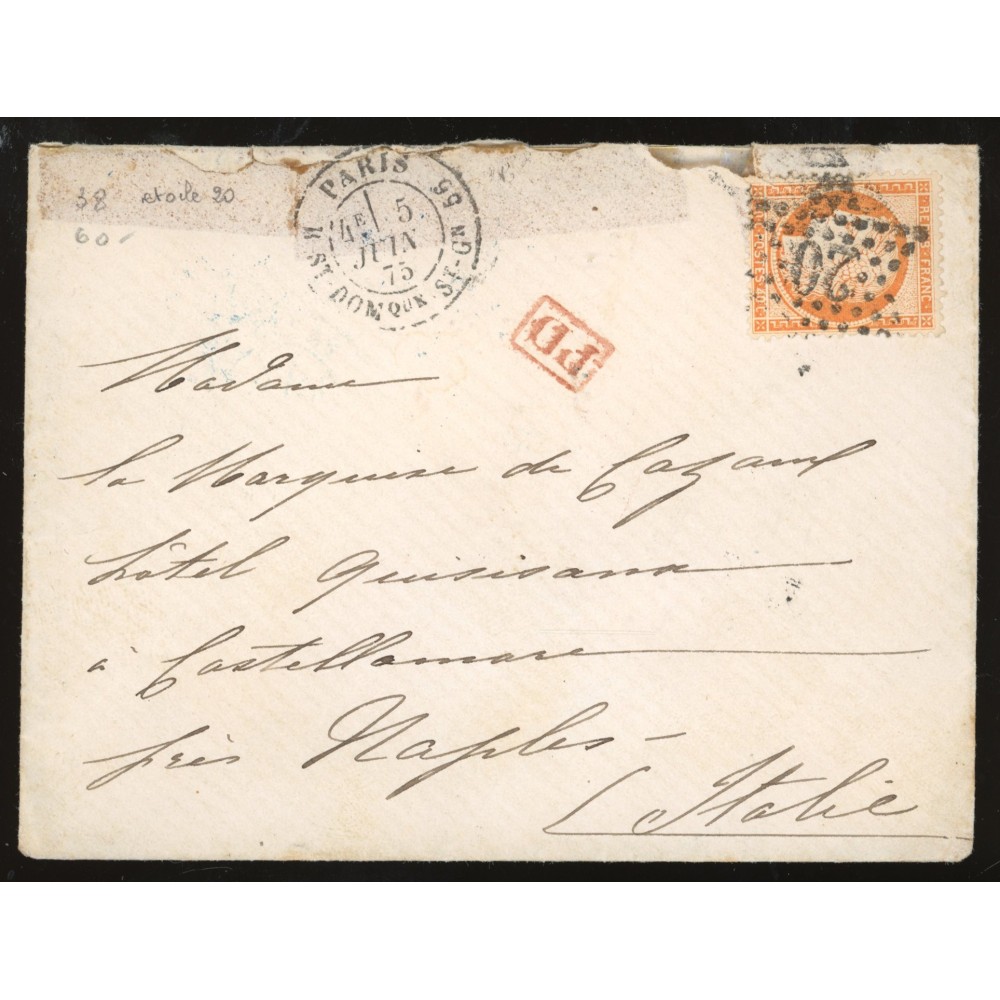 38 etoile 20
60-
PARIS
4E 5
JUIN
75
R. ST-DOMQUE ST-GN 55
20
REPUB FRANC
40 C POSTES 40 C
PD
Madame
la Marquise de
hôtel Quisisana
à Castellamare
près Naples -
Italie